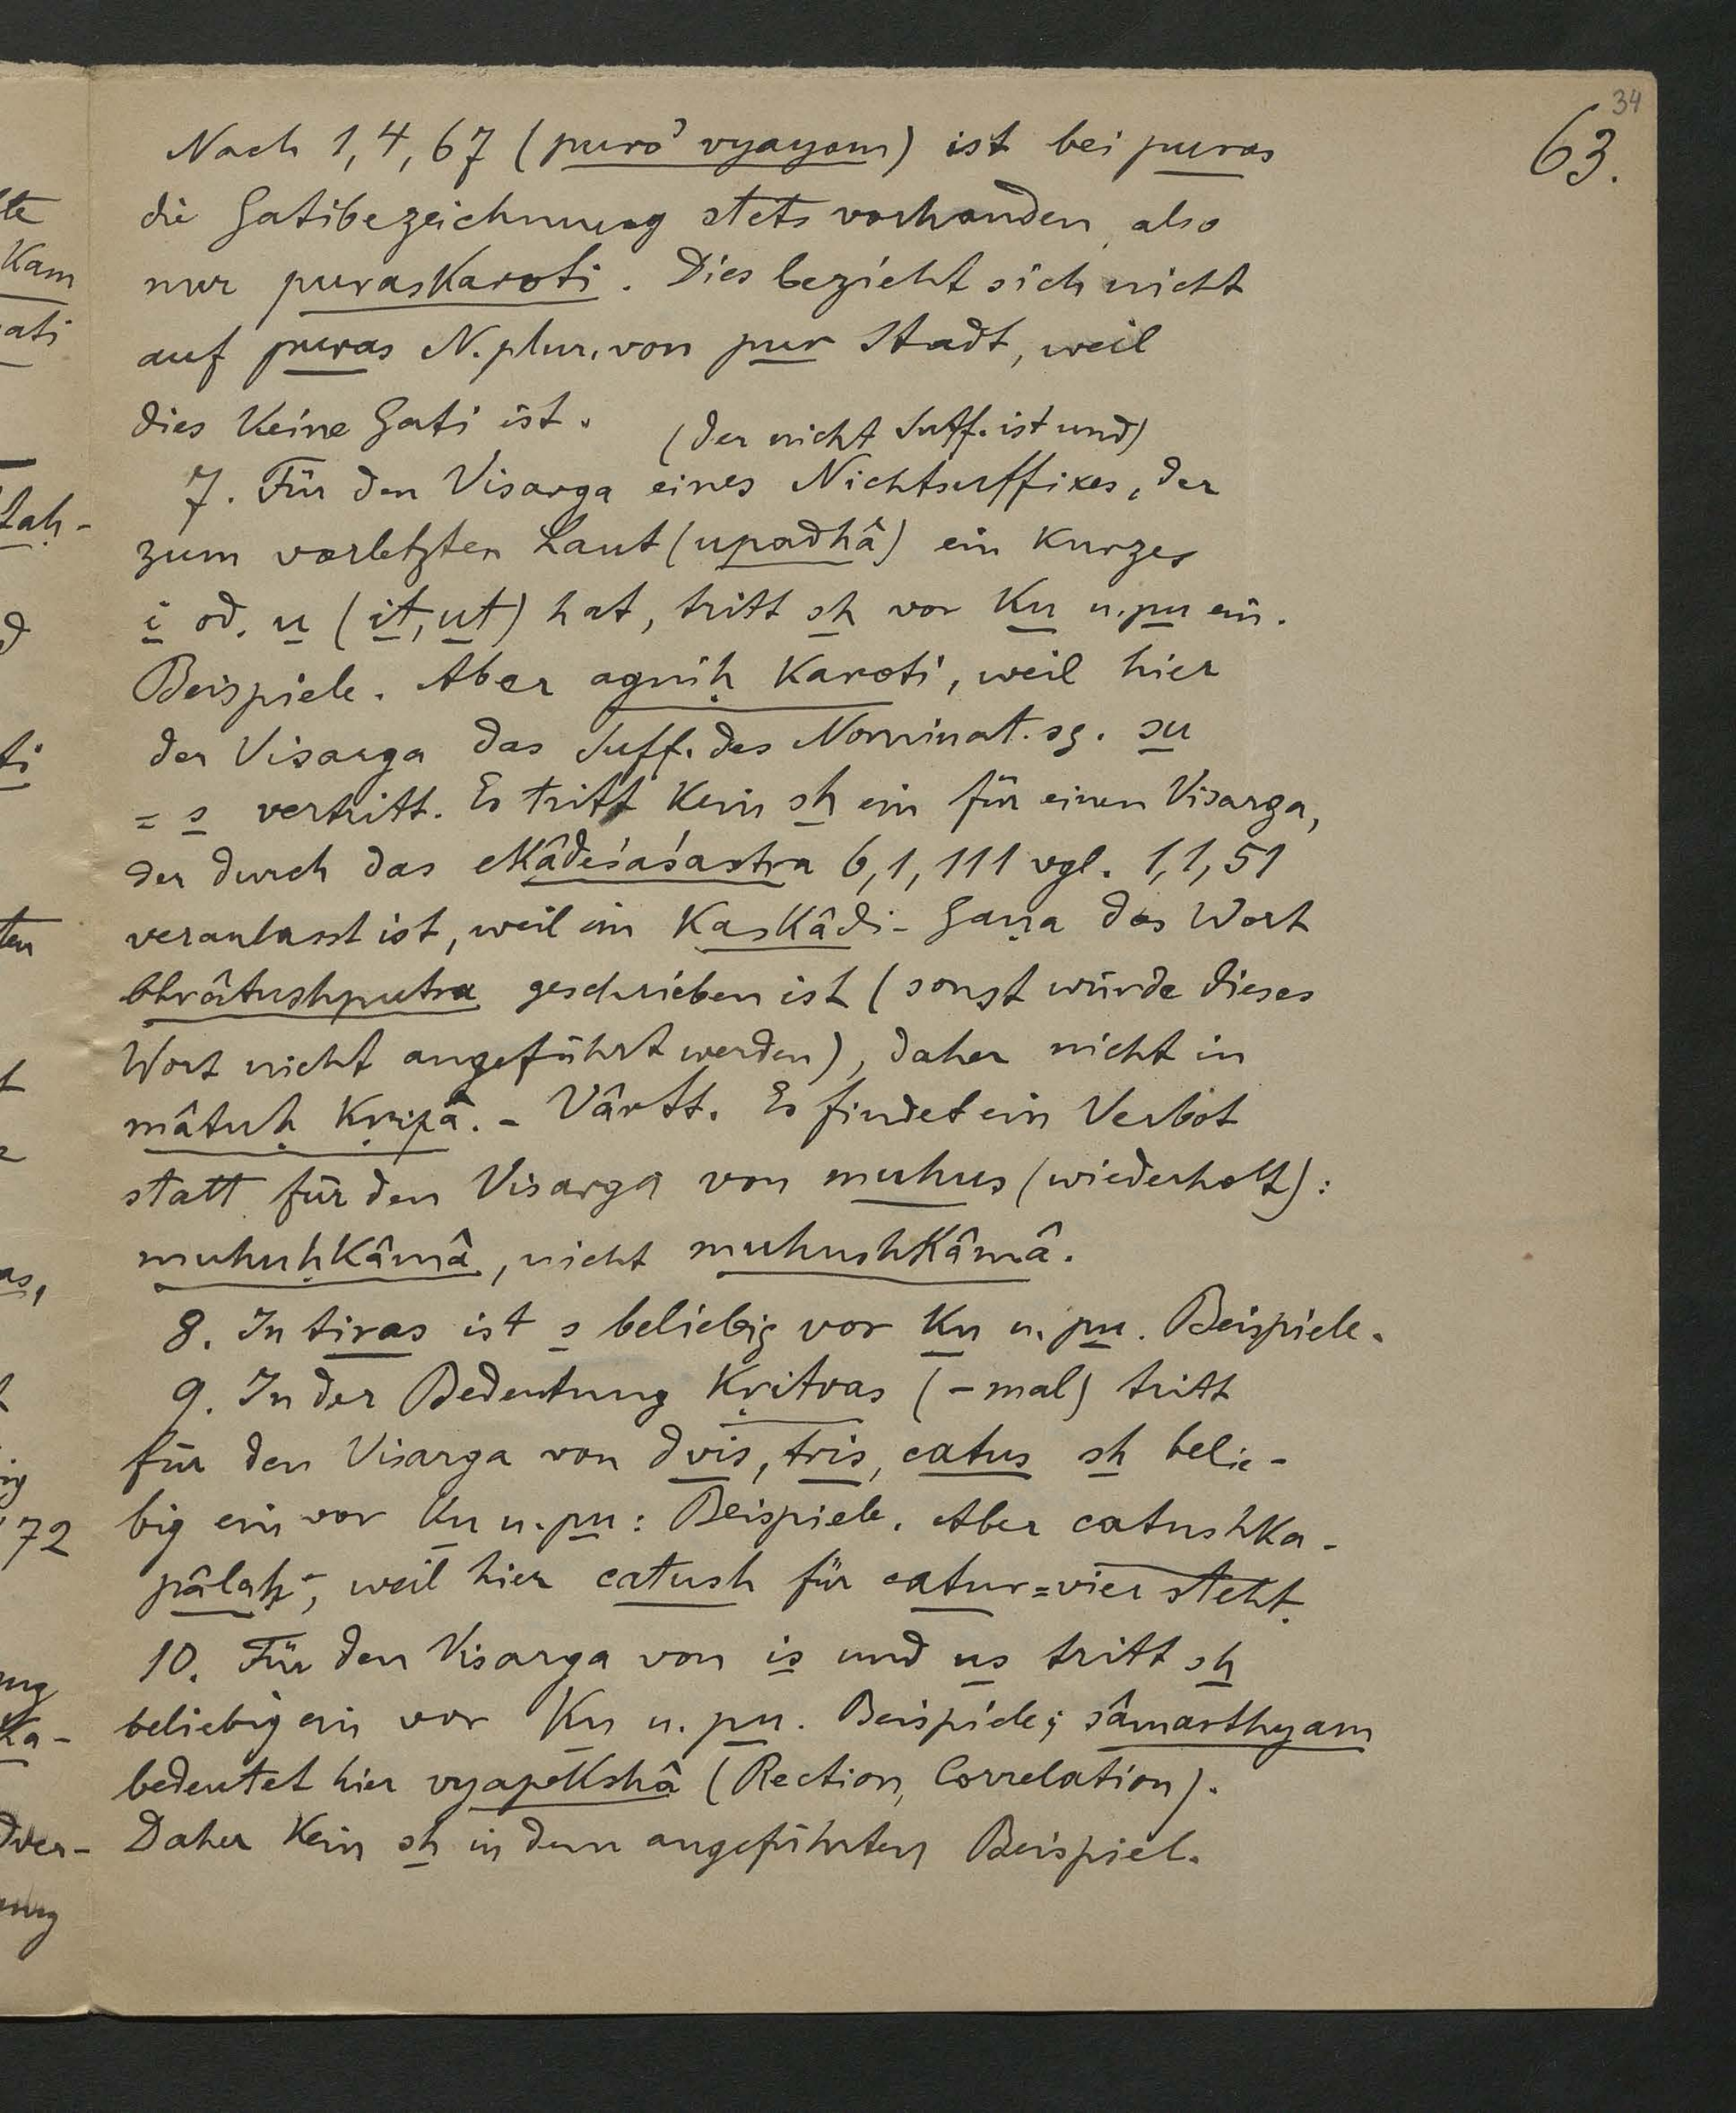 34
63.
Nach 1,4,67 (puro' vyayam) ist bei puras
die Gatibezeichnung stets vorhanden, also
nur puraskaroti. Dies bezieht sich nicht
auf puras N. plur. von pur Stadt, weil
dies keine Gati ist.
(der nicht Suff. ist und)
7. Für den Visarga eines Nichtsuffixes, der
zum vorletzten Laut (upadhâ) ein kurzes
i od. u (it, ut) hat, tritt sh vor ku u. pu ein.
Beispiele. Aber agniḥ karoti, weil hier
der Visarga das Suff. des Nominat. sg. su
= s vertritt. Es tritt kein sh ein für einen Visarga,
der durch das ekâdeśaśastra 6,1,111 vgl. 1,1,51
veranlasst ist, weil im Kaskâdi-Gaṇa das Wort
bhrâtushputra geschrieben ist (sonst würde dieses
Wort nicht angeführt werden), daher nicht in
mâtuḥ kṛipâ. - Vârtt. Es findet ein Verbot
statt für den Visarga von muhus (wiederholt):
muhuḥkâmâ, nicht muhushkâmâ.
8. In tiras ist s beliebig vor ku u. pu. Beispiele.
9. In der Bedeutung kṛitvas (-mal) tritt
für den Visarga von dvis, tris, catus sh belie-
big ein vor ku u. pu: Beispiele. Aber catushka-
pâlaḥ, weil hier catush für catur=vier steht.
10. Für den Visarga von is und us tritt sh
beliebig ein vor ku u. pu. Beispiele; sâmarthyam
bedeutet hier vyapekshâ (Rection, Correlation).
Daher kein sh in dem angeführten Beispiel.